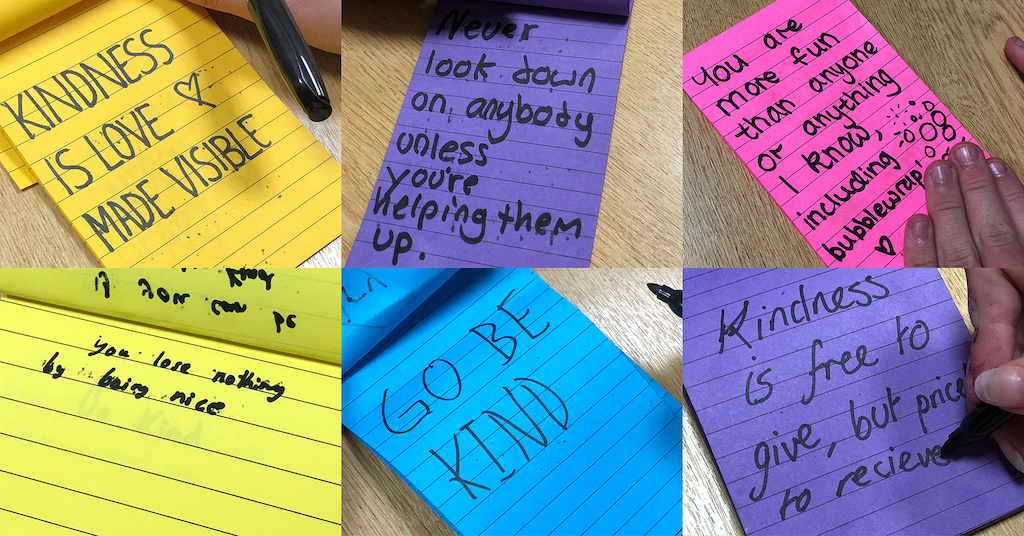 KINDNESS
IS LOVE ♡
MADE VISIBLE
Never
look down
on anybody
unless
you're
Helping them
up.
You are
more fun
than anyone
or anything
I know,
including
bubblewrap!
♡
you lose nothing
by being nice
GO BE
KIND
Kindness
is free to
give, but price
to recieve